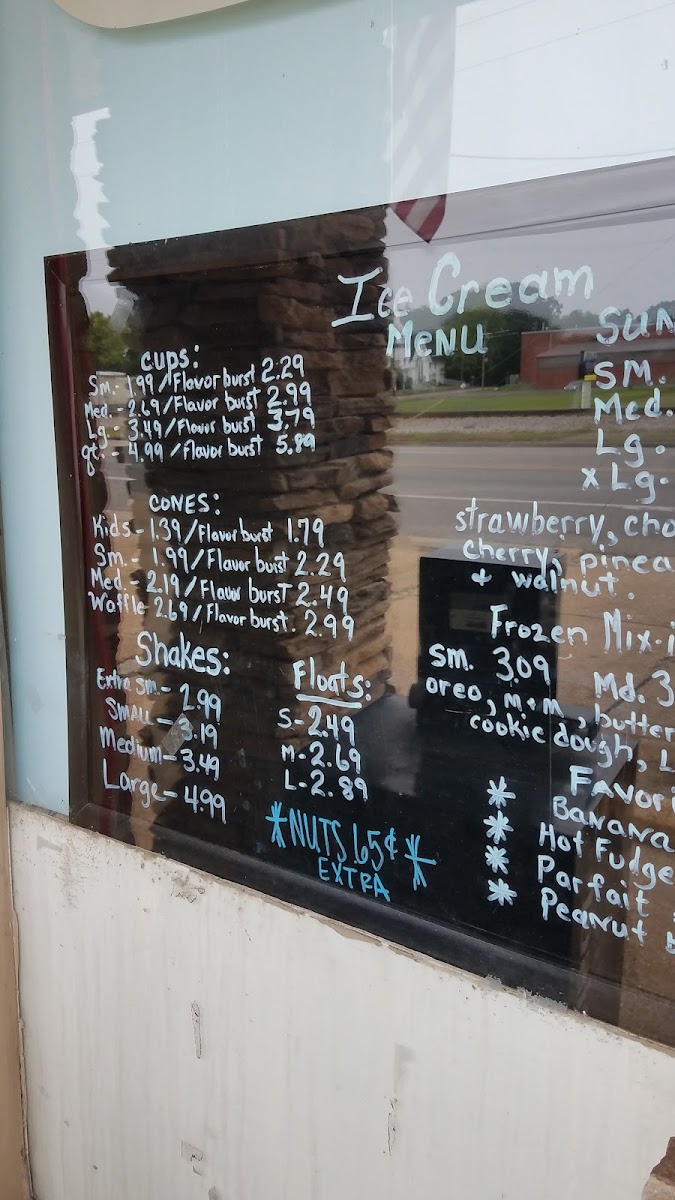 Ice Cream
Menu
Cups:
Sm. - 1.99 / Flavor burst 2.29
Med. - 2.69 / Flavor burst 2.99
Lg. - 3.49 / Flavor burst 3.79
qt. - 4.99 / Flavor burst 5.89
Cones:
Kids - 1.39 / Flavor burst 1.79
Sm. - 1.99 / Flavor burst 2.29
Med. - 2.19 / Flavor burst 2.49
Waffle 2.69 / Flavor burst. 2.99
Shakes:
Extra Sm. - 2.99
Small - 3.19
Medium - 3.49
Large - 4.99
Floats:
S - 2.49
M - 2.69
L - 2.89
*NUTS 65¢*
EXTRA
Sun
SM.
Med.
Lg.
xLg.
strawberry, cho
cherry, pinea
+ walnut.
Frozen Mix-i
Sm. 3.09 Md. 3
oreo, m+m, butter
cookie dough, L
Favori
* Banana
* Hot Fudge
* Parfait
* Peanut